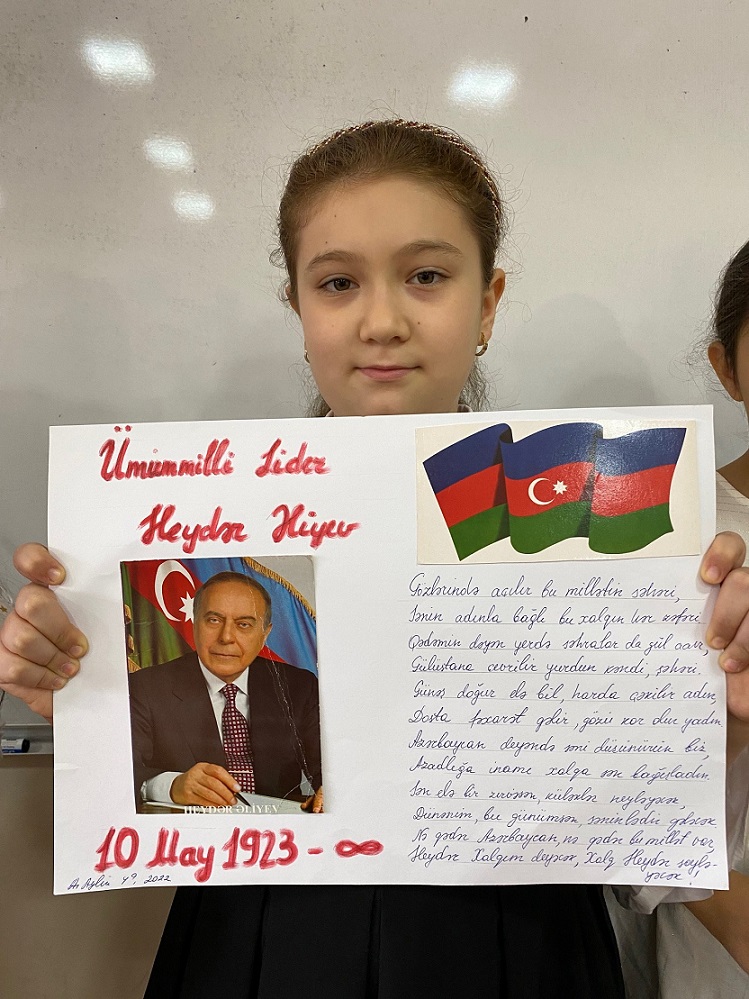 Ümummilli Lider
Heydər Əliyev
HEYDƏR ƏLİYEV
10 May 1923 - ∞
2022
Gözlərində açılır bu millətin səhəri,
Sənin adınla bağlı bu xalqın hər zəfəri.
Qədəmin dəyən yerdə səhralar da gül açır,
Gülüstana çevrilir yurdun kəndi, şəhəri.
Günəş doğur elə bil, harda çəkilir adın,
Dosta fəxarət gəlir, gözü kor olur yadın.
Azərbaycan deyəndə səni düşünürük biz,
Azadlığa inamı xalqa sən bağışladın.
Sən elə bir zirvəsən, küləklər neyləyəcək,
Dünənim, bu günümsən, səninlədir gələcək.
Nə qədər Azərbaycan, nə qədər bu millət var,
Heydər Xalqım deyəcək, Xalq Heydər söylə-
yəcək!